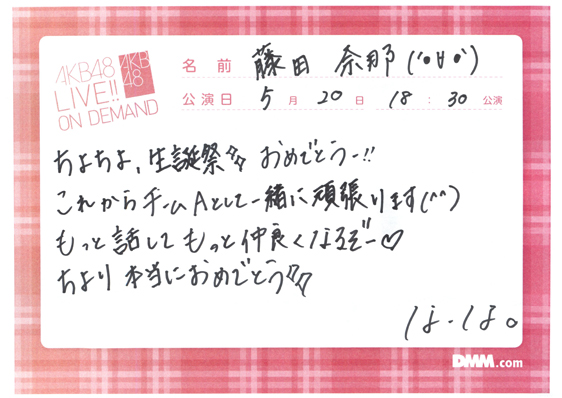 AKB48
LIVE!!
ON DEMAND
AKB
48
名前 藤田 奈那 (*°∀°*)
公演日 5月20日 18:30公演
ちよちよ、生誕祭 おめでとうー!!
これからチームAとして一緒に頑張ります(^^)
もっと話して もっと仲良くなるぞー♡
ちより 本当におめでとう
なーなo
DMM.com